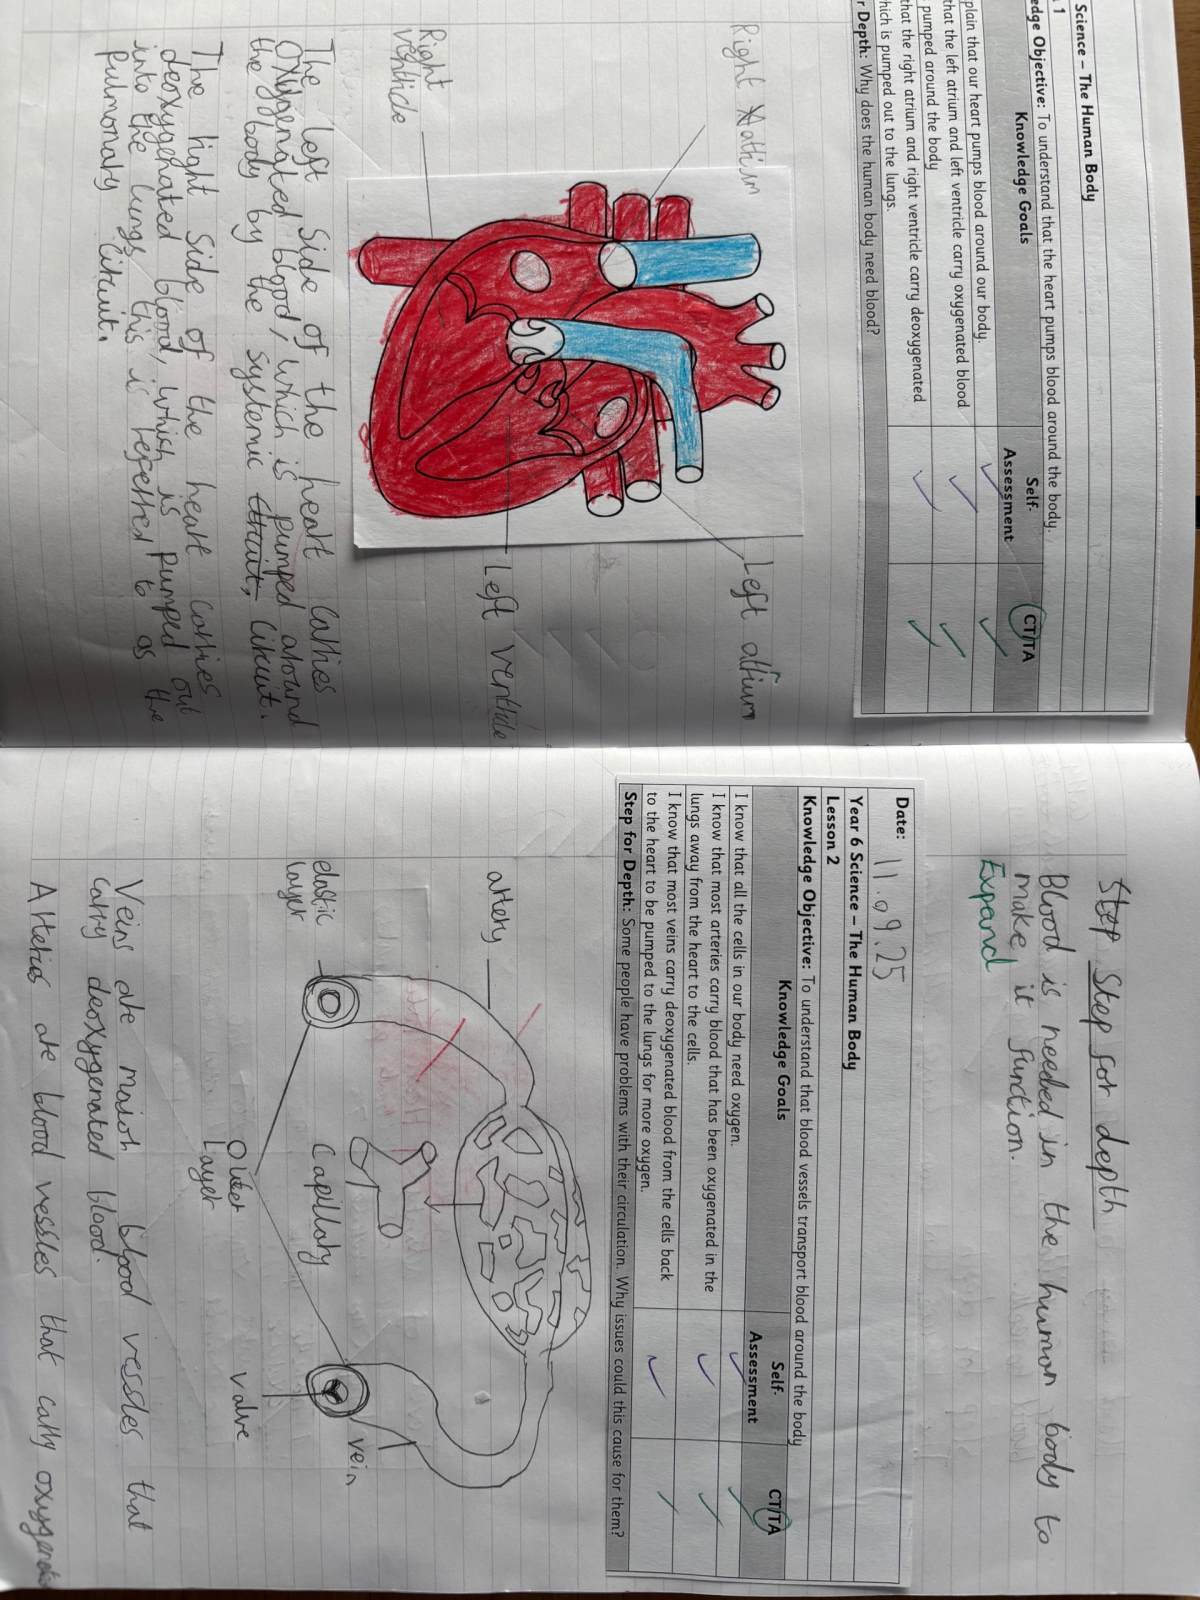 Science – The Human Body
1
edge Objective: To understand that the heart pumps blood around the body.
Knowledge Goals
Self-
Assessment
CT/TA
plain that our heart pumps blood around our body.
that the left atrium and left ventricle carry oxygenated blood
pumped around the body
that the right atrium and right ventricle carry deoxygenated
hich is pumped out to the lungs.
r Depth: Why does the human body need blood?
Right atrium
Left atrium
Right
ventricle
Left ventricle
The left side of the heart carries
oxygenated blood, which is pumped around
the body by the systemic circuit, circuit.
The right side of the heart carries
deoxygenated blood, which is pumped out
into the lungs this is referred to as the
pulmonary circuit.
Step Step for depth
Blood is needed in the human body to
make it function.
Expand
Date: 11.09.25
Year 6 Science – The Human Body
Lesson 2
Knowledge Objective: To understand that blood vessels transport blood around the body
Knowledge Goals
Self-
Assessment
CT/TA
I know that all the cells in our body need oxygen.
I know that most arteries carry blood that has been oxygenated in the
lungs away from the heart to the cells.
I know that most veins carry deoxygenated blood from the cells back
to the heart to be pumped to the lungs for more oxygen.
Step for Depth: Some people have problems with their circulation. Why issues could this cause for them?
artery
elastic
layer
Capillary
Outer
Layer
valve
vein
Veins are blood vessles that
carry deoxygenated blood.
Arteries are blood vessles that carry